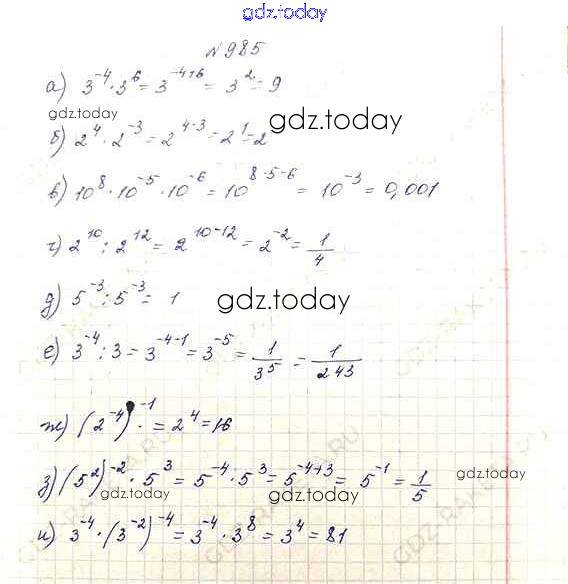 gdz.today
№985
а) 3⁻⁴ · 3⁶ = 3⁻⁴⁺⁶ = 3² = 9
gdz.today
gdz.today
б) 2⁴ · 2⁻³ = 2⁴⁻³ = 2¹ = 2
в) 10⁸ · 10⁻⁵ · 10⁻⁶ = 10⁸⁻⁵⁻⁶ = 10⁻³ = 0,001
г) 2¹⁰ : 2¹² = 2¹⁰⁻¹² = 2⁻² = 1/4
д) 5⁻³ : 5⁻³ = 1
gdz.today
е) 3⁻⁴ : 3 = 3⁻⁴⁻¹ = 3⁻⁵ = 1/3⁵ = 1/243
ж) (2⁻⁴)⁻¹ = 2⁴ = 16
з) (5²)⁻² · 5³ = 5⁻⁴ · 5³ = 5⁻⁴⁺³ = 5⁻¹ = 1/5
gdz.today
gdz.today
gdz.today
и) 3⁻⁴ · (3⁻²)⁻⁴ = 3⁻⁴ · 3⁸ = 3⁴ = 81